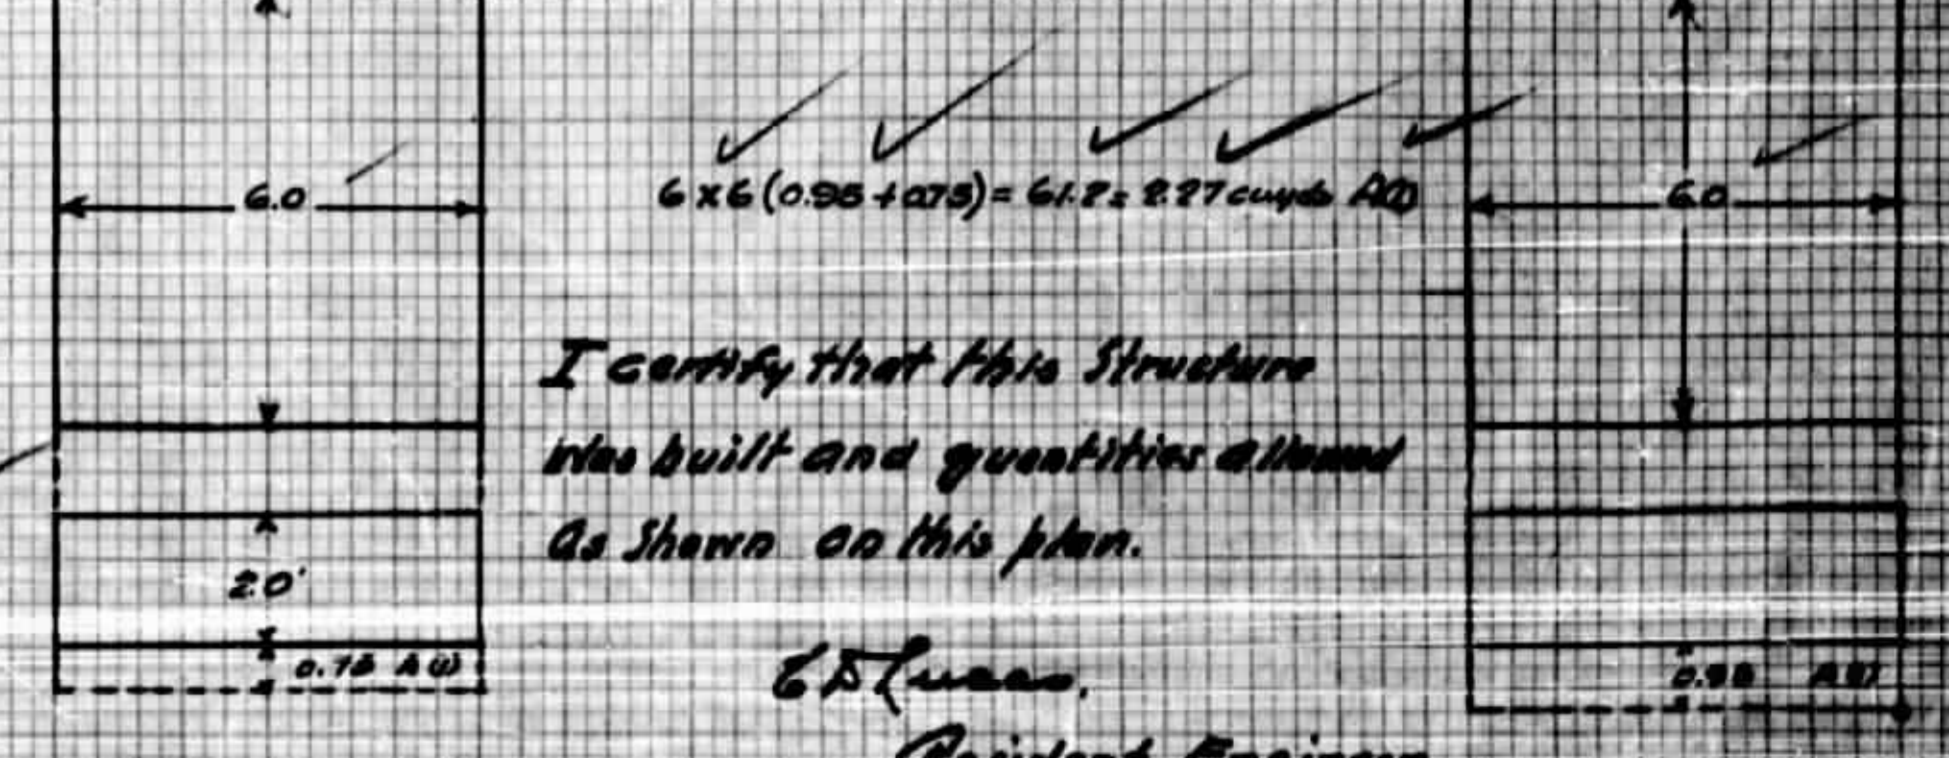 6.0
6 x 6 (0.95 + 0.75) = 61.2 = 2.27 cuyds A(1)
6.0
I certify that this Structure
was built and quantities allowed
as Shown on this plan.
2.0'
E D Lucas.
0.75 A(1)
0.95 A(1)
Resident Engineer